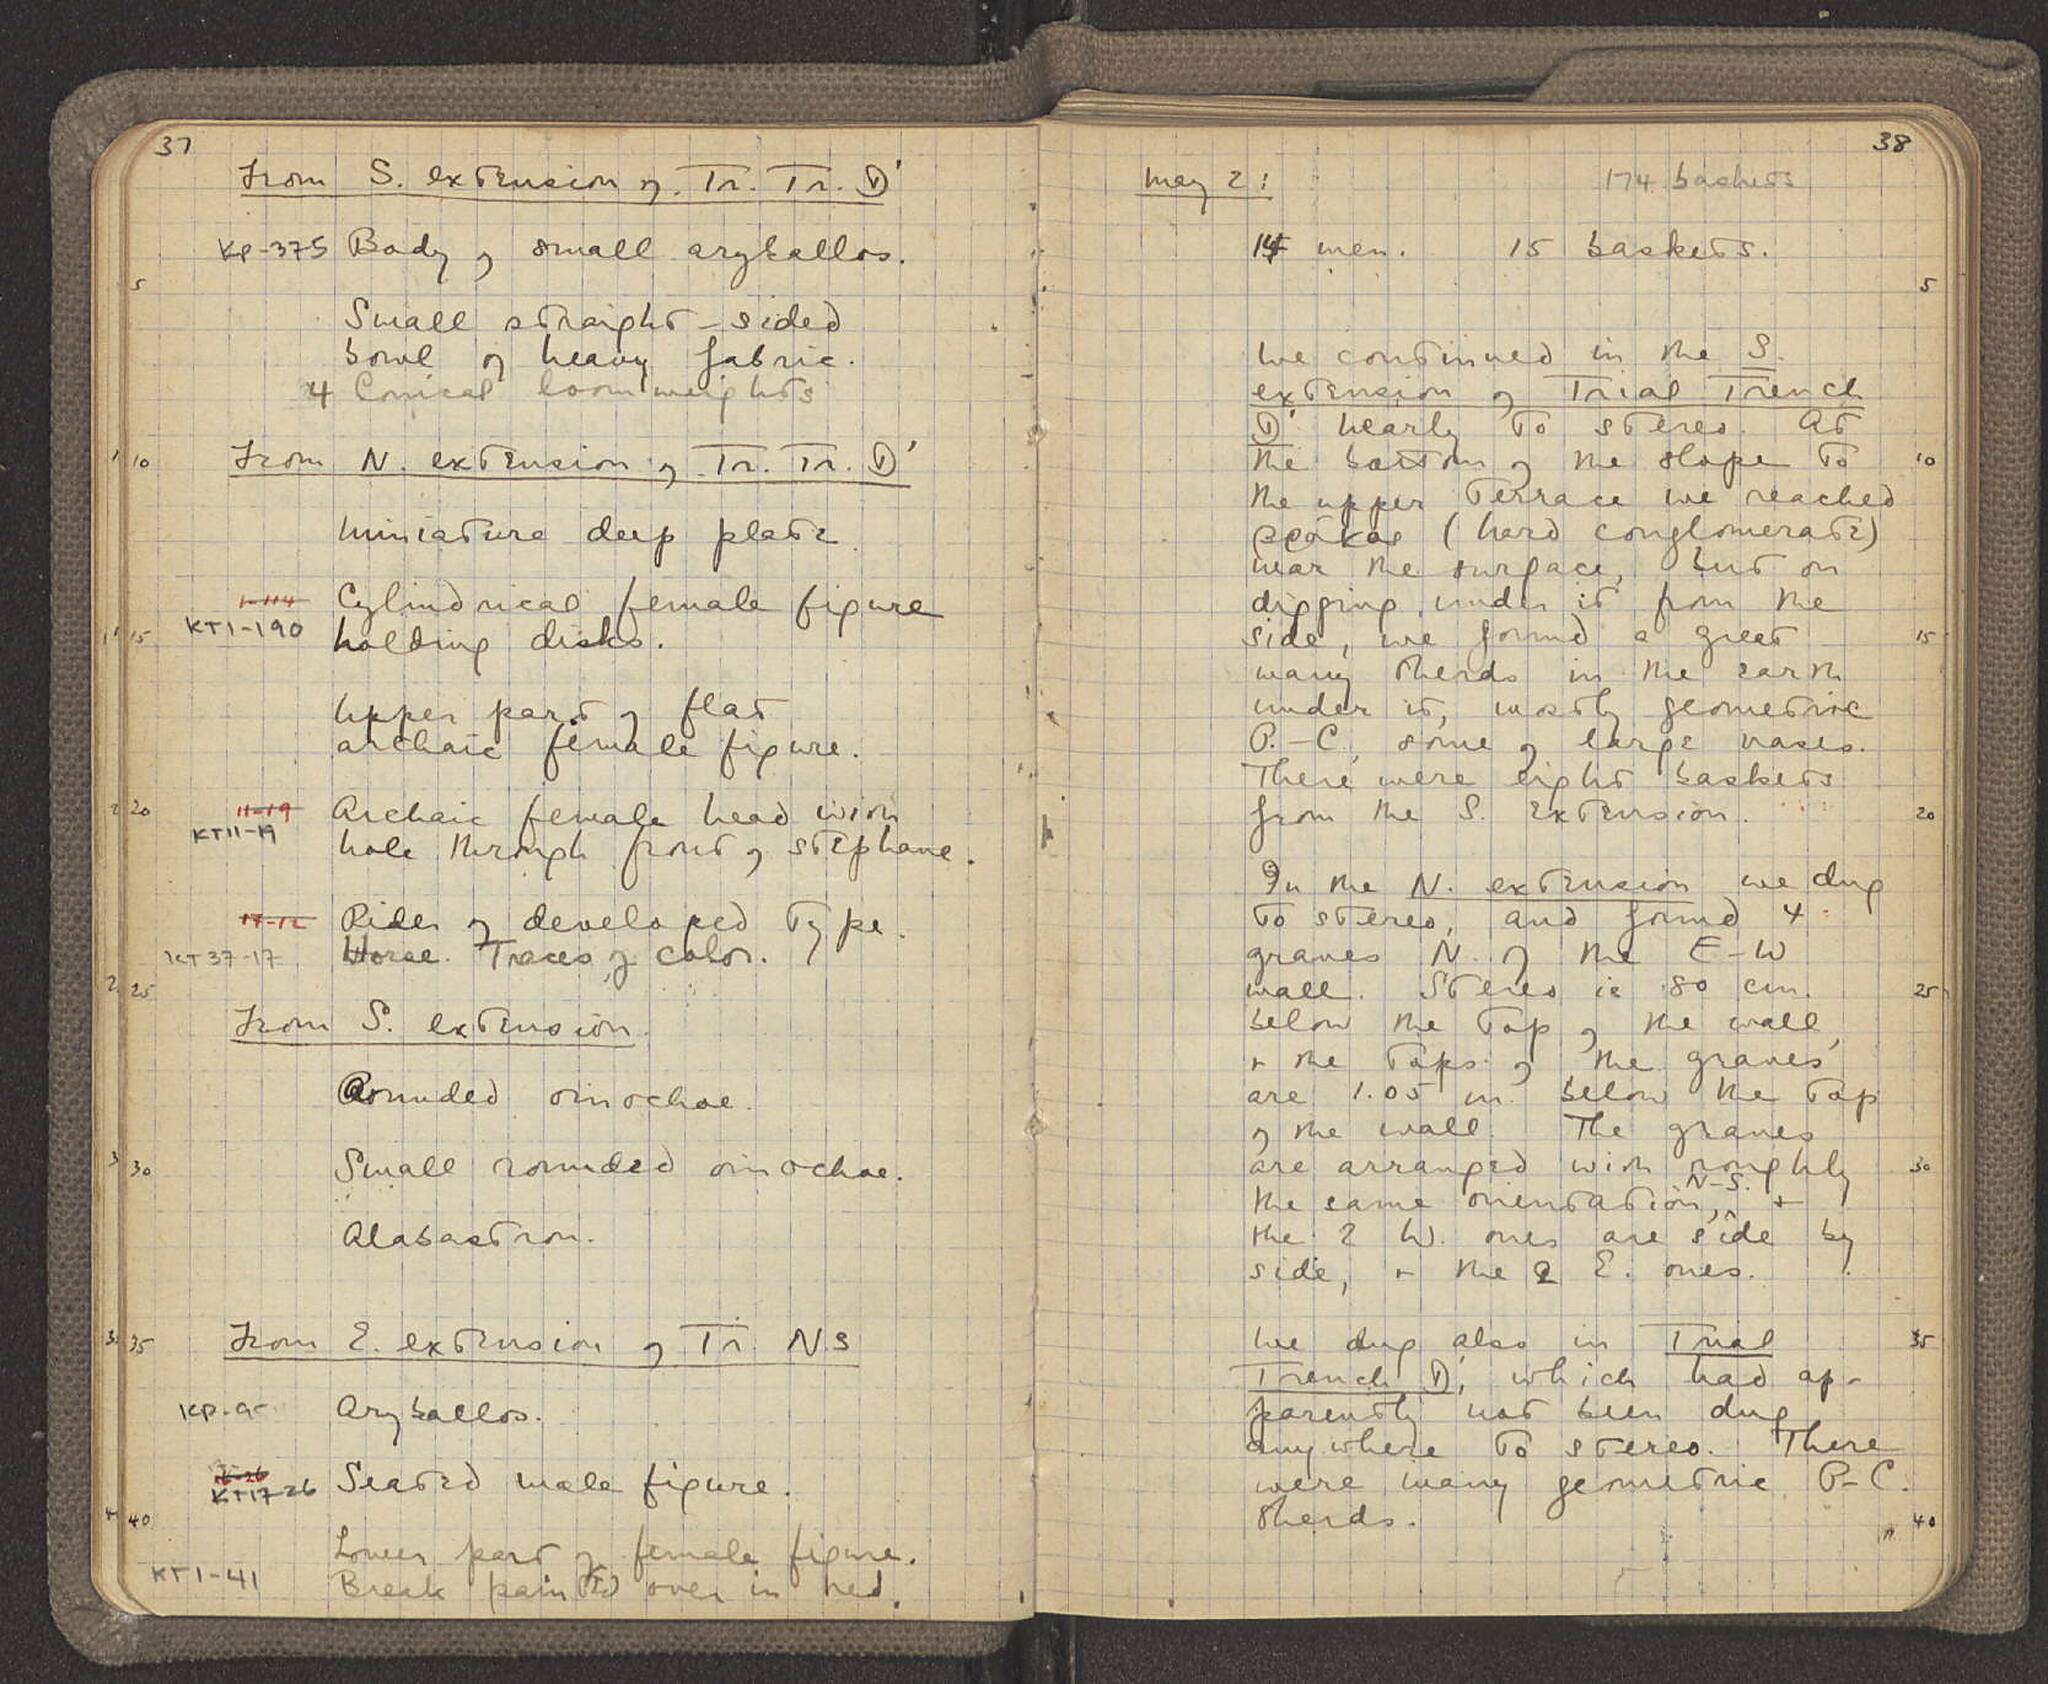 37
From S. extension of Tr. Tr. D'
KP-375 Body of small aryballos.
5
Small straight-sided
bowl of heavy fabric.
4 Conical loomweights
10 From N. extension of Tr. Tr. D'
Miniature deep plate.
1-114 Cylindrical female figure
KT1-190
15 holding disks.
Upper part of flat
archaic female figure.
20 11-19 Archaic female head with
KT11-19
hole through front of stephane.
17-12 Rider of developed type.
KT37-17 Horse. Traces of color.
25
From S. extension.
Rounded oinochoe.
30 Small rounded oinochoe.
Alabastron.
35 From E. extension of Tr. NS
KP-9 Aryballos.
KT17-26 Seated male figure.
40
Lower part of female figure.
KT1-41 Break painted over in red.
38
May 2: 174 baskets
14 men. 15 baskets.
5
We continued in the S.
extension of Trial Trench
D' nearly to stereo. At
the bottom of the slope to 10
the upper terrace we reached
βράχος (hard conglomerate)
near the surface, but on
digging under it from the
side, we found a great 15
many sherds in the earth
under it, mostly geometric
P.-C., some of large vases.
There were eight baskets
from the S. extension. 20
In the N. extension we dug
to stereo, and found 4
graves N. of the E-W
wall. Stereo is 80 cm. 25
below the top of the wall,
+ the tops of the graves
are 1.05 m. below the top
of the wall. The graves
are arranged with roughly 30
N-S.
the same orientation, +
the 2 W. ones are side by
side, + the 2 E. ones.
We dug also in Trial 35
Trench D', which had ap-
parently not been dug
anywhere to stereo. There
were many geometric P-C.
sherds. 40